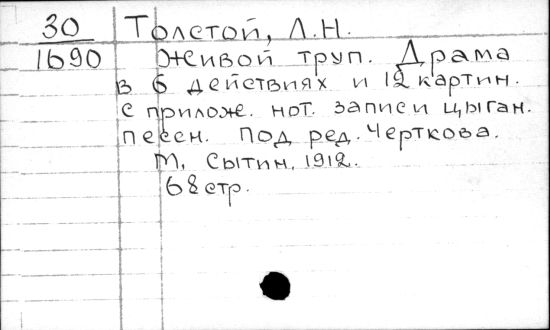 30 Толстой, Л.Н.
1690 Живой труп. Драма
в 6 действиях и 12 картин.
с приложе. нот. записи цыган.
песен. Под ред. Черткова.
М, Сытин, 1912.
68 стр.